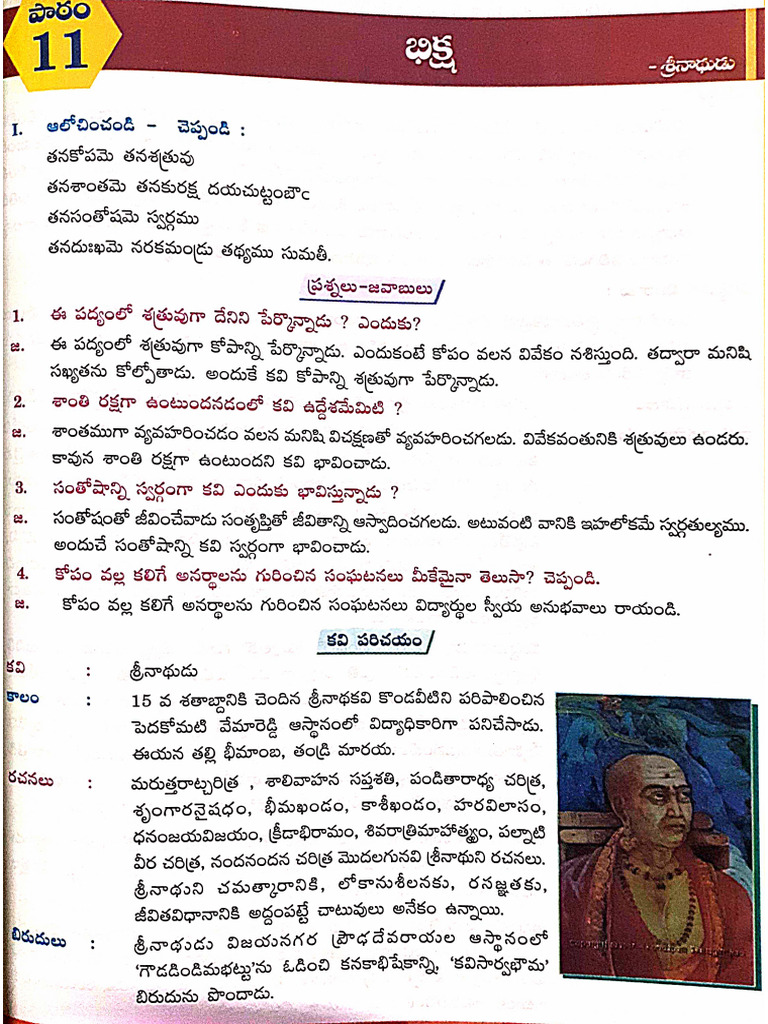 పాఠం
11
భిక్ష
- శ్రీనాథుడు
I. ఆలోచించండి - చెప్పండి :
తనకోపమె తనశత్రువు
తనశాంతమె తనకురక్ష దయచుట్టంబౌఁ
తనసంతోషమె స్వర్గము
తనదుఃఖమె నరకమండ్రు తథ్యము సుమతీ.
ప్రశ్నలు-జవాబులు
1. ఈ పద్యంలో శత్రువుగా దేనిని పేర్కొన్నాడు ? ఎందుకు?
జ. ఈ పద్యంలో శత్రువుగా కోపాన్ని పేర్కొన్నాడు. ఎందుకంటే కోపం వలన వివేకం నశిస్తుంది. తద్వారా మనిషి
సఖ్యతను కోల్పోతాడు. అందుకే కవి కోపాన్ని శత్రువుగా పేర్కొన్నాడు.
2. శాంతి రక్షగా ఉంటుందనడంలో కవి ఉద్దేశమేమిటి ?
జ. శాంతముగా వ్యవహరించడం వలన మనిషి విచక్షణతో వ్యవహరించగలడు. వివేకవంతునికి శత్రువులు ఉండరు.
కావున శాంతి రక్షగా ఉంటుందని కవి భావించాడు.
3. సంతోషాన్ని స్వర్గంగా కవి ఎందుకు భావిస్తున్నాడు ?
జ. సంతోషంతో జీవించేవాడు సంతృప్తితో జీవితాన్ని ఆస్వాదించగలడు. అటువంటి వానికి ఇహలోకమే స్వర్గతుల్యము.
అందుచే సంతోషాన్ని కవి స్వర్గంగా భావించాడు.
4. కోపం వల్ల కలిగే అనర్థాలను గురించిన సంఘటనలు మీకేమైనా తెలుసా? చెప్పండి.
జ. కోపం వల్ల కలిగే అనర్థాలను గురించిన సంఘటనలు విద్యార్థుల స్వీయ అనుభవాలు రాయండి.
కవి పరిచయం
కవి : శ్రీనాథుడు
కాలం : 15 వ శతాబ్దానికి చెందిన శ్రీనాథకవి కొండవీటిని పరిపాలించిన
పెదకోమటి వేమారెడ్డి ఆస్థానంలో విద్యాధికారిగా పనిచేసాడు.
ఈయన తల్లి భీమాంబ, తండ్రి మారయ.
రచనలు : మరుత్తరాట్చరిత్ర , శాలివాహన సప్తశతి, పండితారాధ్య చరిత్ర,
శృంగారనైషధం, భీమఖండం, కాశీఖండం, హరవిలాసం,
ధనంజయవిజయం, క్రీడాభిరామం, శివరాత్రిమాహాత్మ్యం, పల్నాటి
వీర చరిత్ర, నందనందన చరిత్ర మొదలగునవి శ్రీనాథుని రచనలు.
శ్రీనాథుని చమత్కారానికి, లోకానుశీలనకు, రసజ్ఞతకు,
జీవితవిధానానికి అద్దంపట్టే చాటువులు అనేకం ఉన్నాయి.
బిరుదులు : శ్రీనాథుడు విజయనగర ప్రౌఢదేవరాయల ఆస్థానంలో
'గౌడడిండిమభట్టు'ను ఓడించి కనకాభిషేకాన్ని, 'కవిసార్వభౌమ'
బిరుదును పొందాడు.